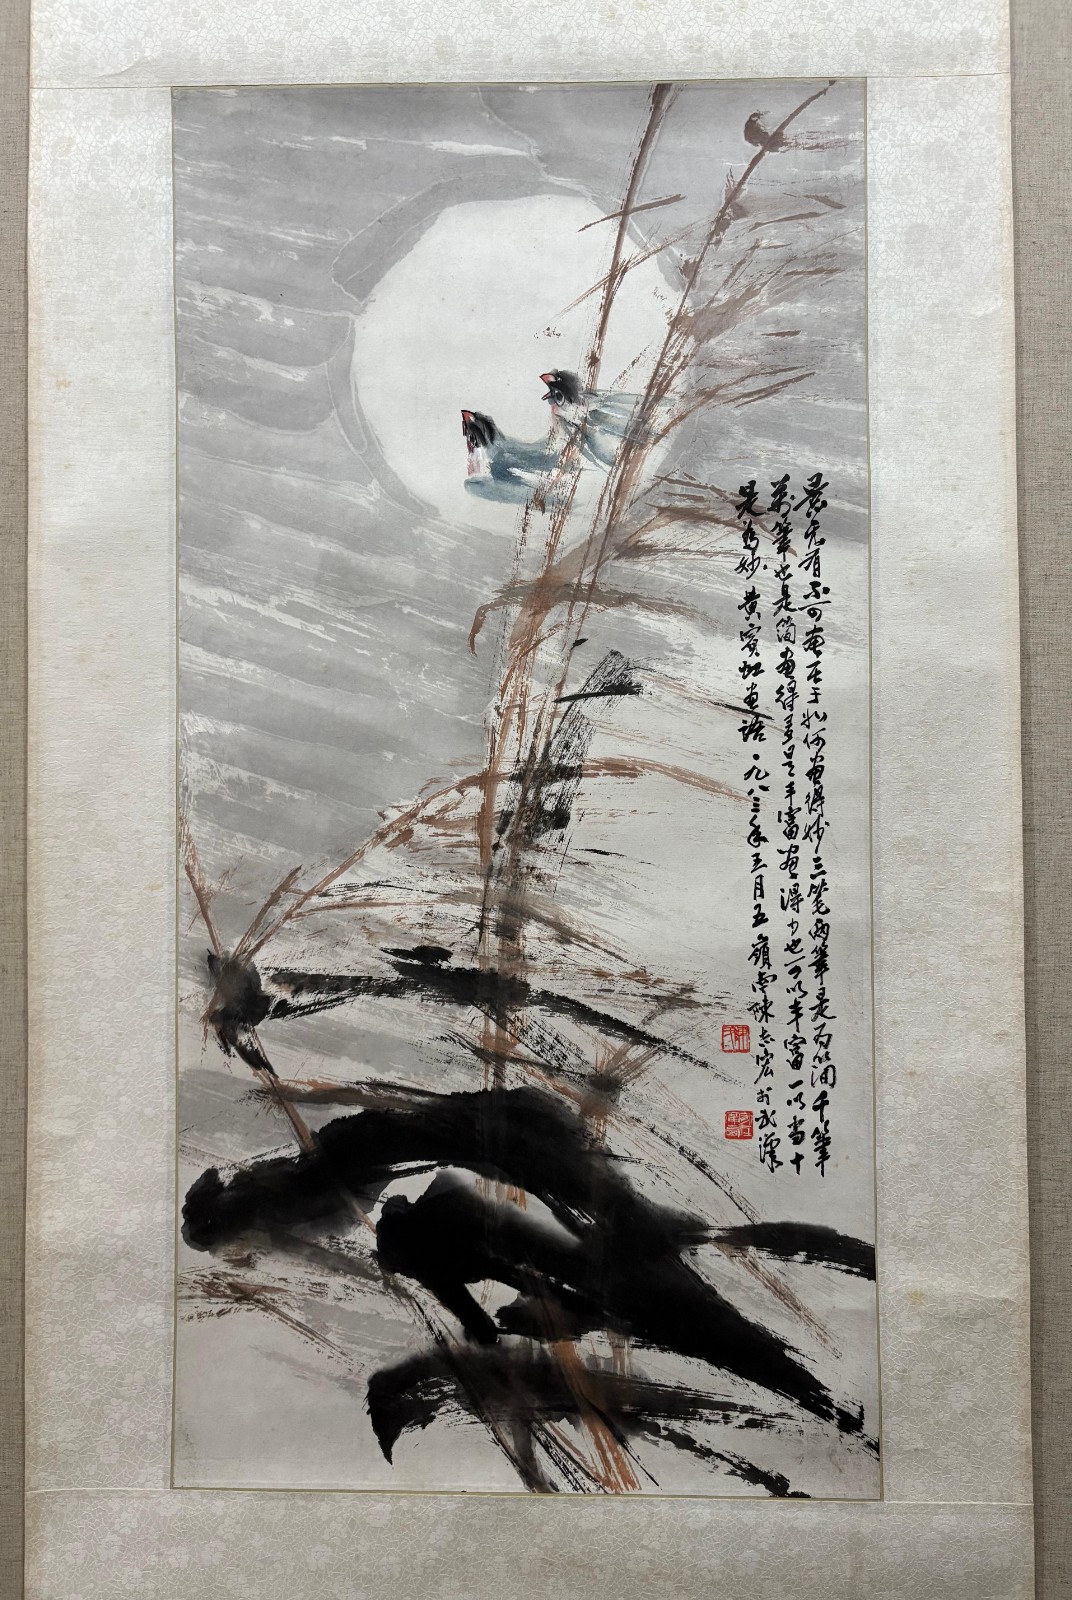 景无有不可画至于如何画得妙三笔两筆是为简千筆
萬筆也是简画得多是丰富画得少也可以丰富一以当十
是为妙 黄宾虹画语 一九八三年三月五 嶺南陈志宏於武漢